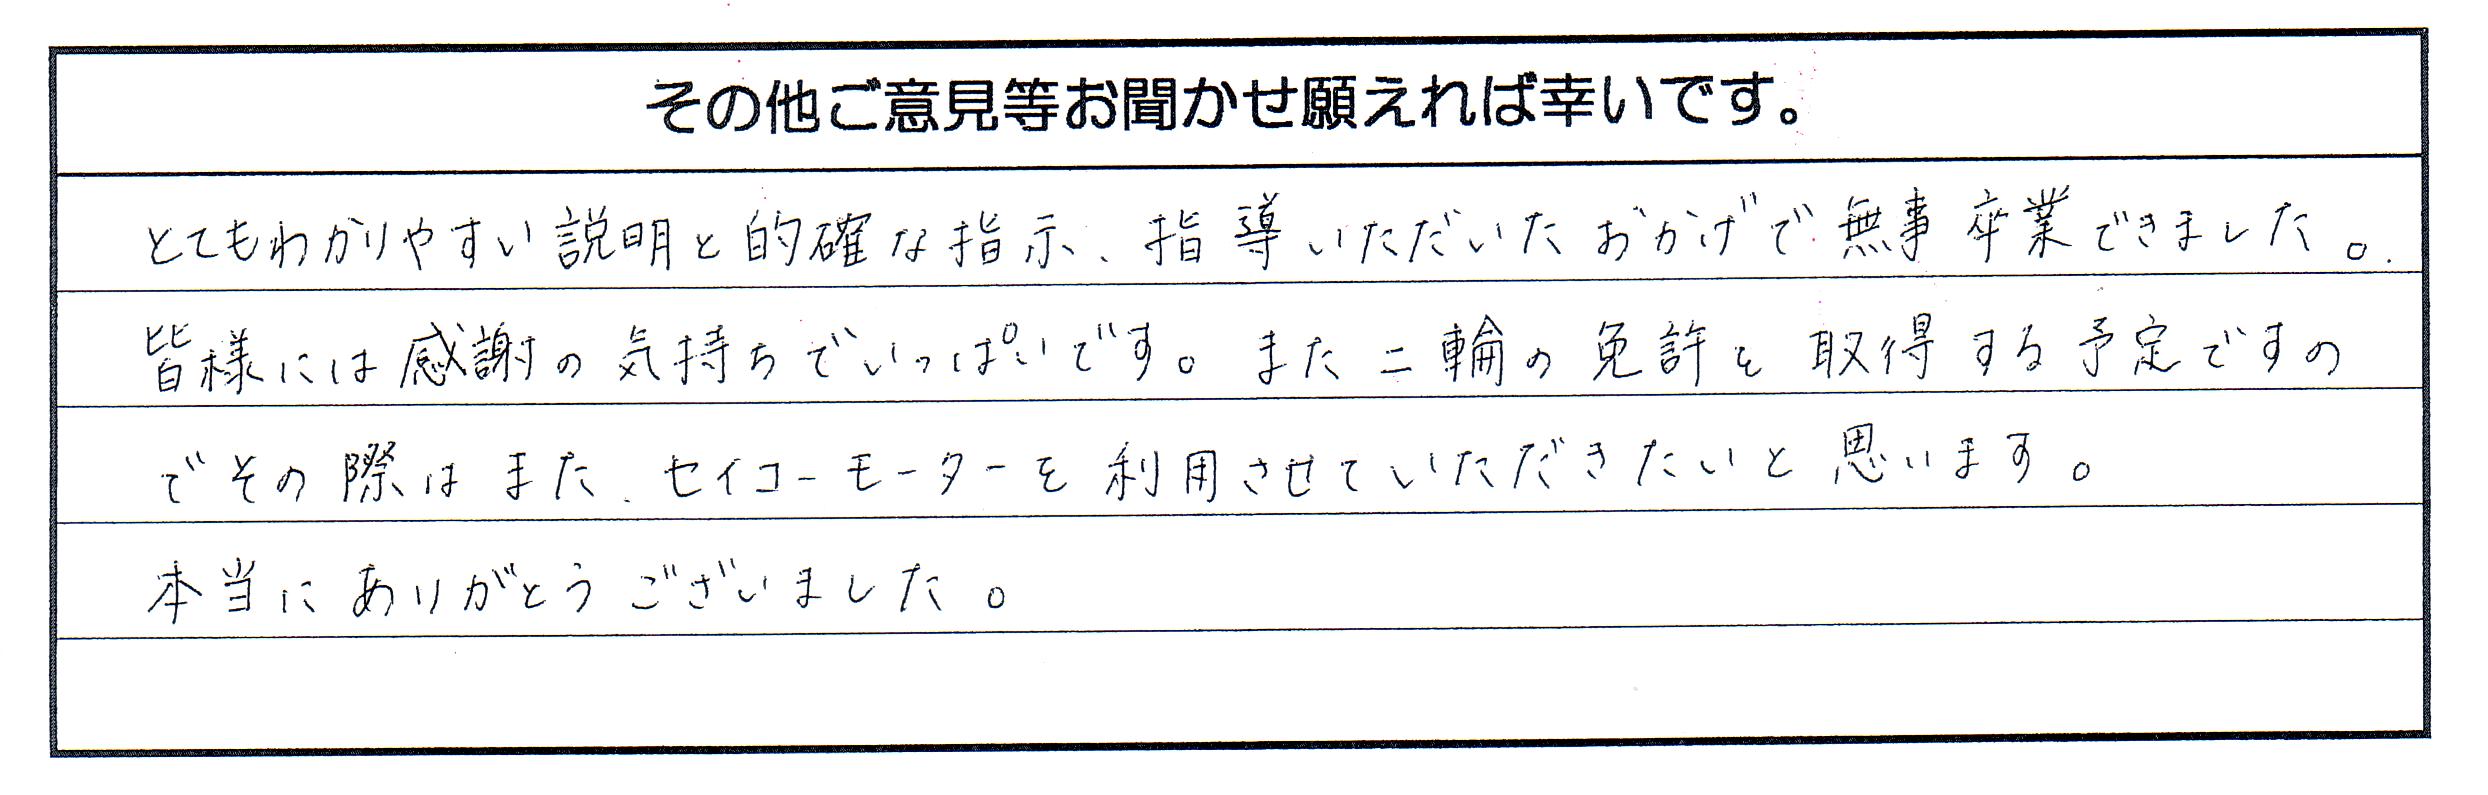 その他ご意見等お聞かせ願えれば幸いです。
とてもわかりやすい説明と的確な指示、指導いただいたおかげで無事卒業できました。
皆様には感謝の気持ちでいっぱいです。また二輪の免許を取得する予定ですの
でその際はまた、セイコーモーターを利用させていただきたいと思います。
本当にありがとうございました。